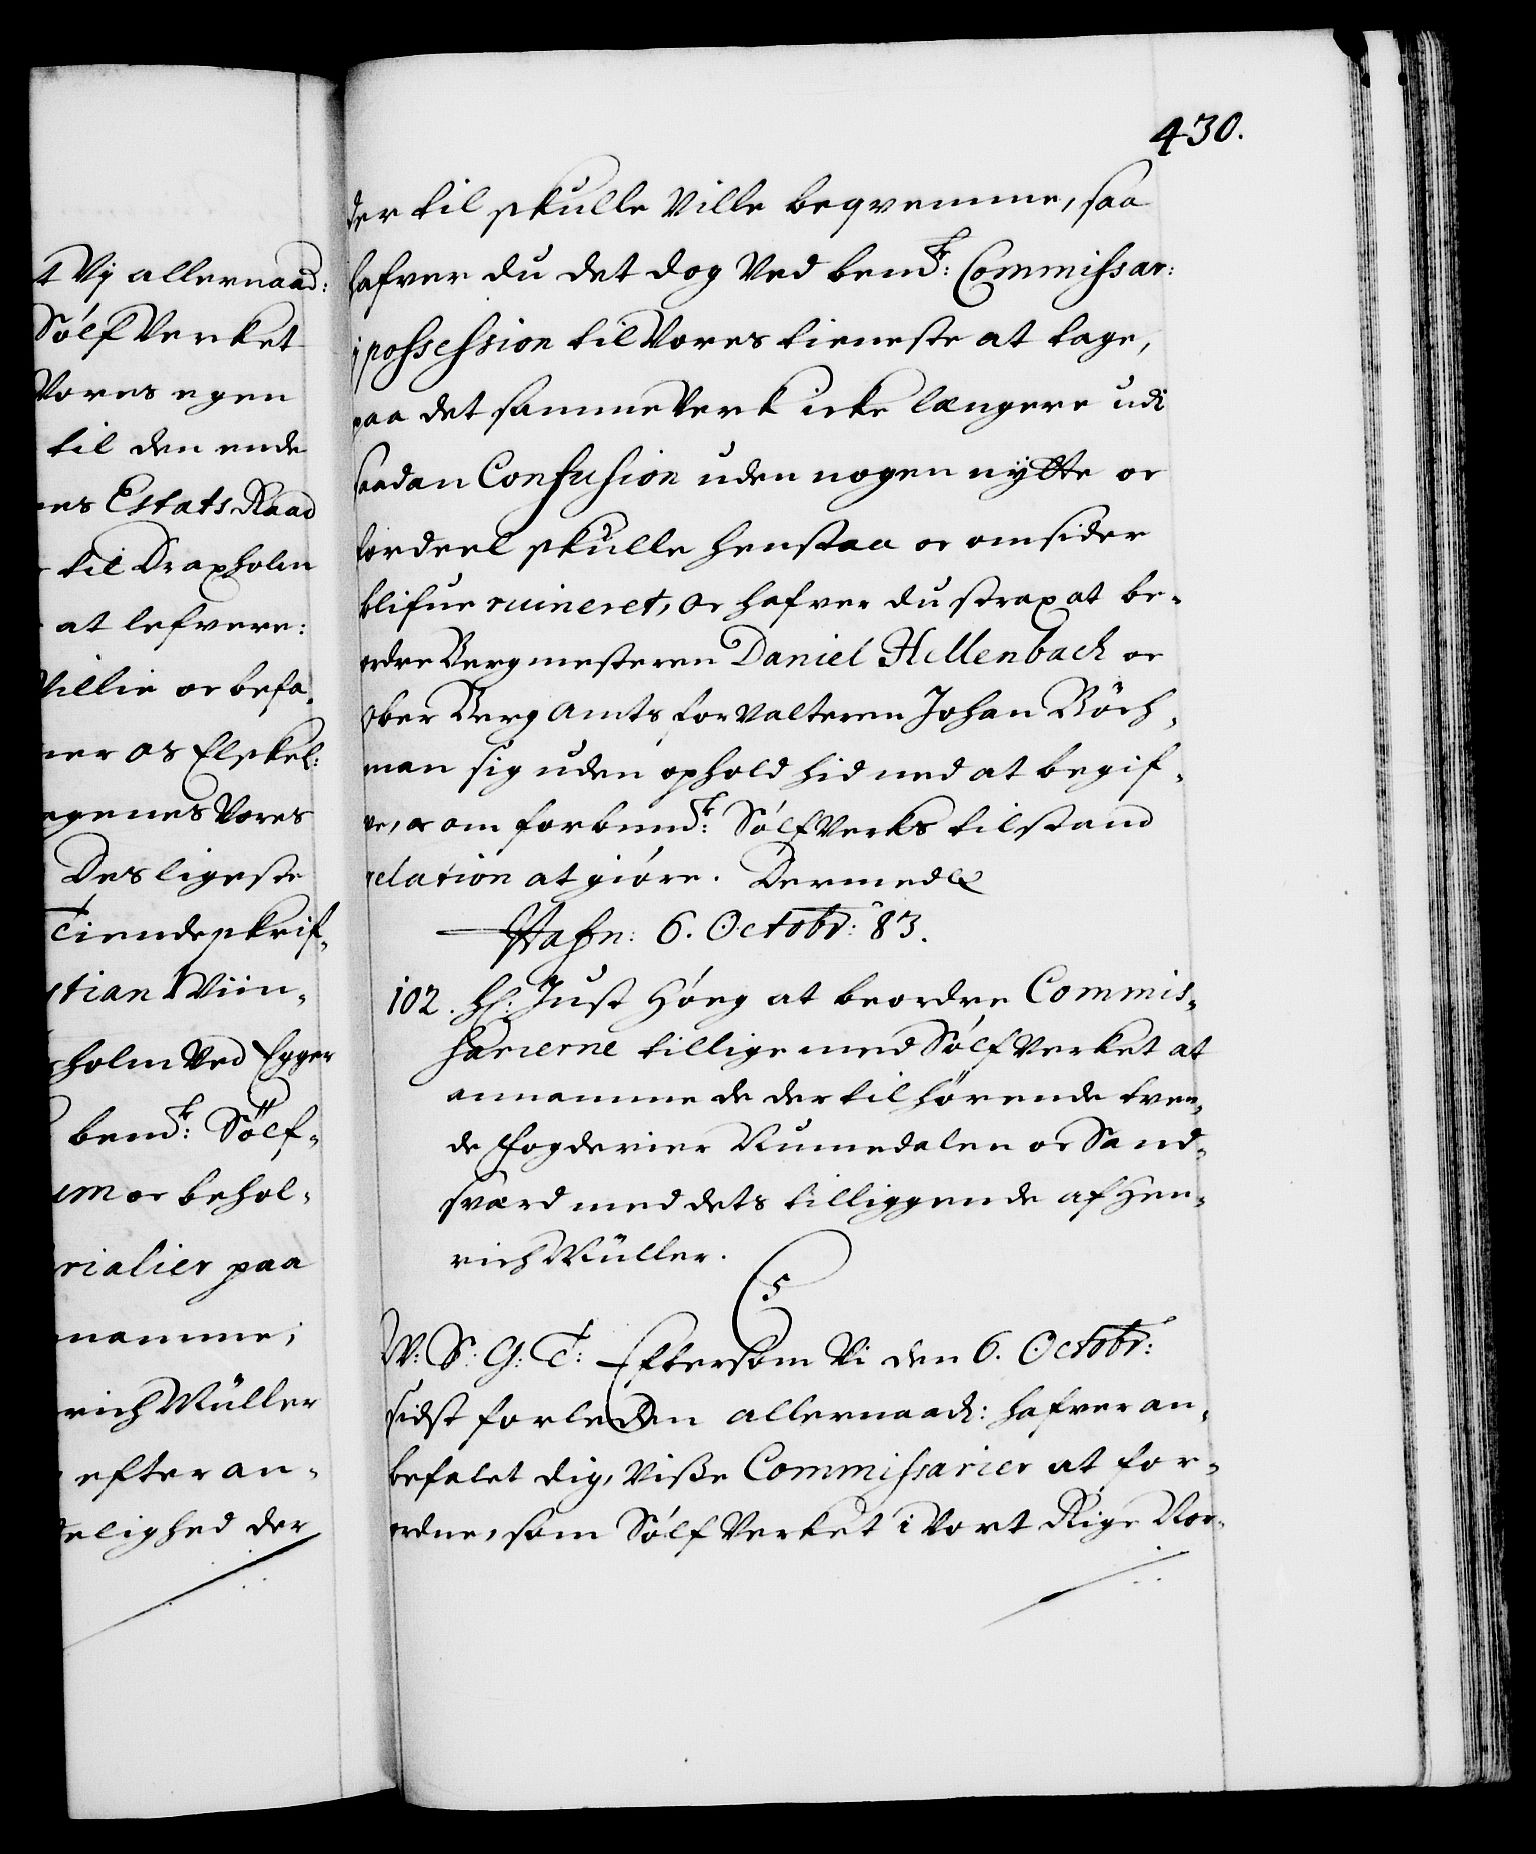 t Vj allernaad:
Sølf Verket
Vores egen
til den ende
nes Estats Raad
til Draxholm
at lefvere:
Villie oc befa-
ner os Elskel:
egenes Vores
Desligeste
Tiendeskrif-
stian Wiin-
holm Ved Eger
bemt: Sølf-
um oc behol-
rialier paa
namme;
rich Müller
efter an-
elighed der
430.
der til skulle Ville beqvemme, saa
hafver du det dog Ved bemt: Commissar:
i possession til Vores tieneste at tage,
paa det samme Verk icke længere udi
saadan Confusion uden nogen nytte oc
fordeel skulle henstaa oc omsider
blifve ruineret, Oc hafver du strax at be-
ordre Bergmesteren Daniel Hellenbach oc
Ober Berg Amts forvalteren Johan Böch-
man sig uden ophold hid ned at begif-
ve, oc om forbemt: Sølf Verks tilstand
relation at giøre. Dermed &
Hafn: 6. Octobr: 83.
102. H: Just Høeg at beordre Commis-
sarierne tillige med Sølf Verket at
annamme de der til hørende tven-
de fogderier Numedalen oc Sand-
sværd med dets tilliggende af Hen-
rich Müller.
W: S: G: T: Eftersom Vi den 6. Octobr:
sidst forleden allernaad: hafver an-
befalet dig, Visse Commissarier at for-
ordne, som Sølf Verket i Vort Rige Nor-